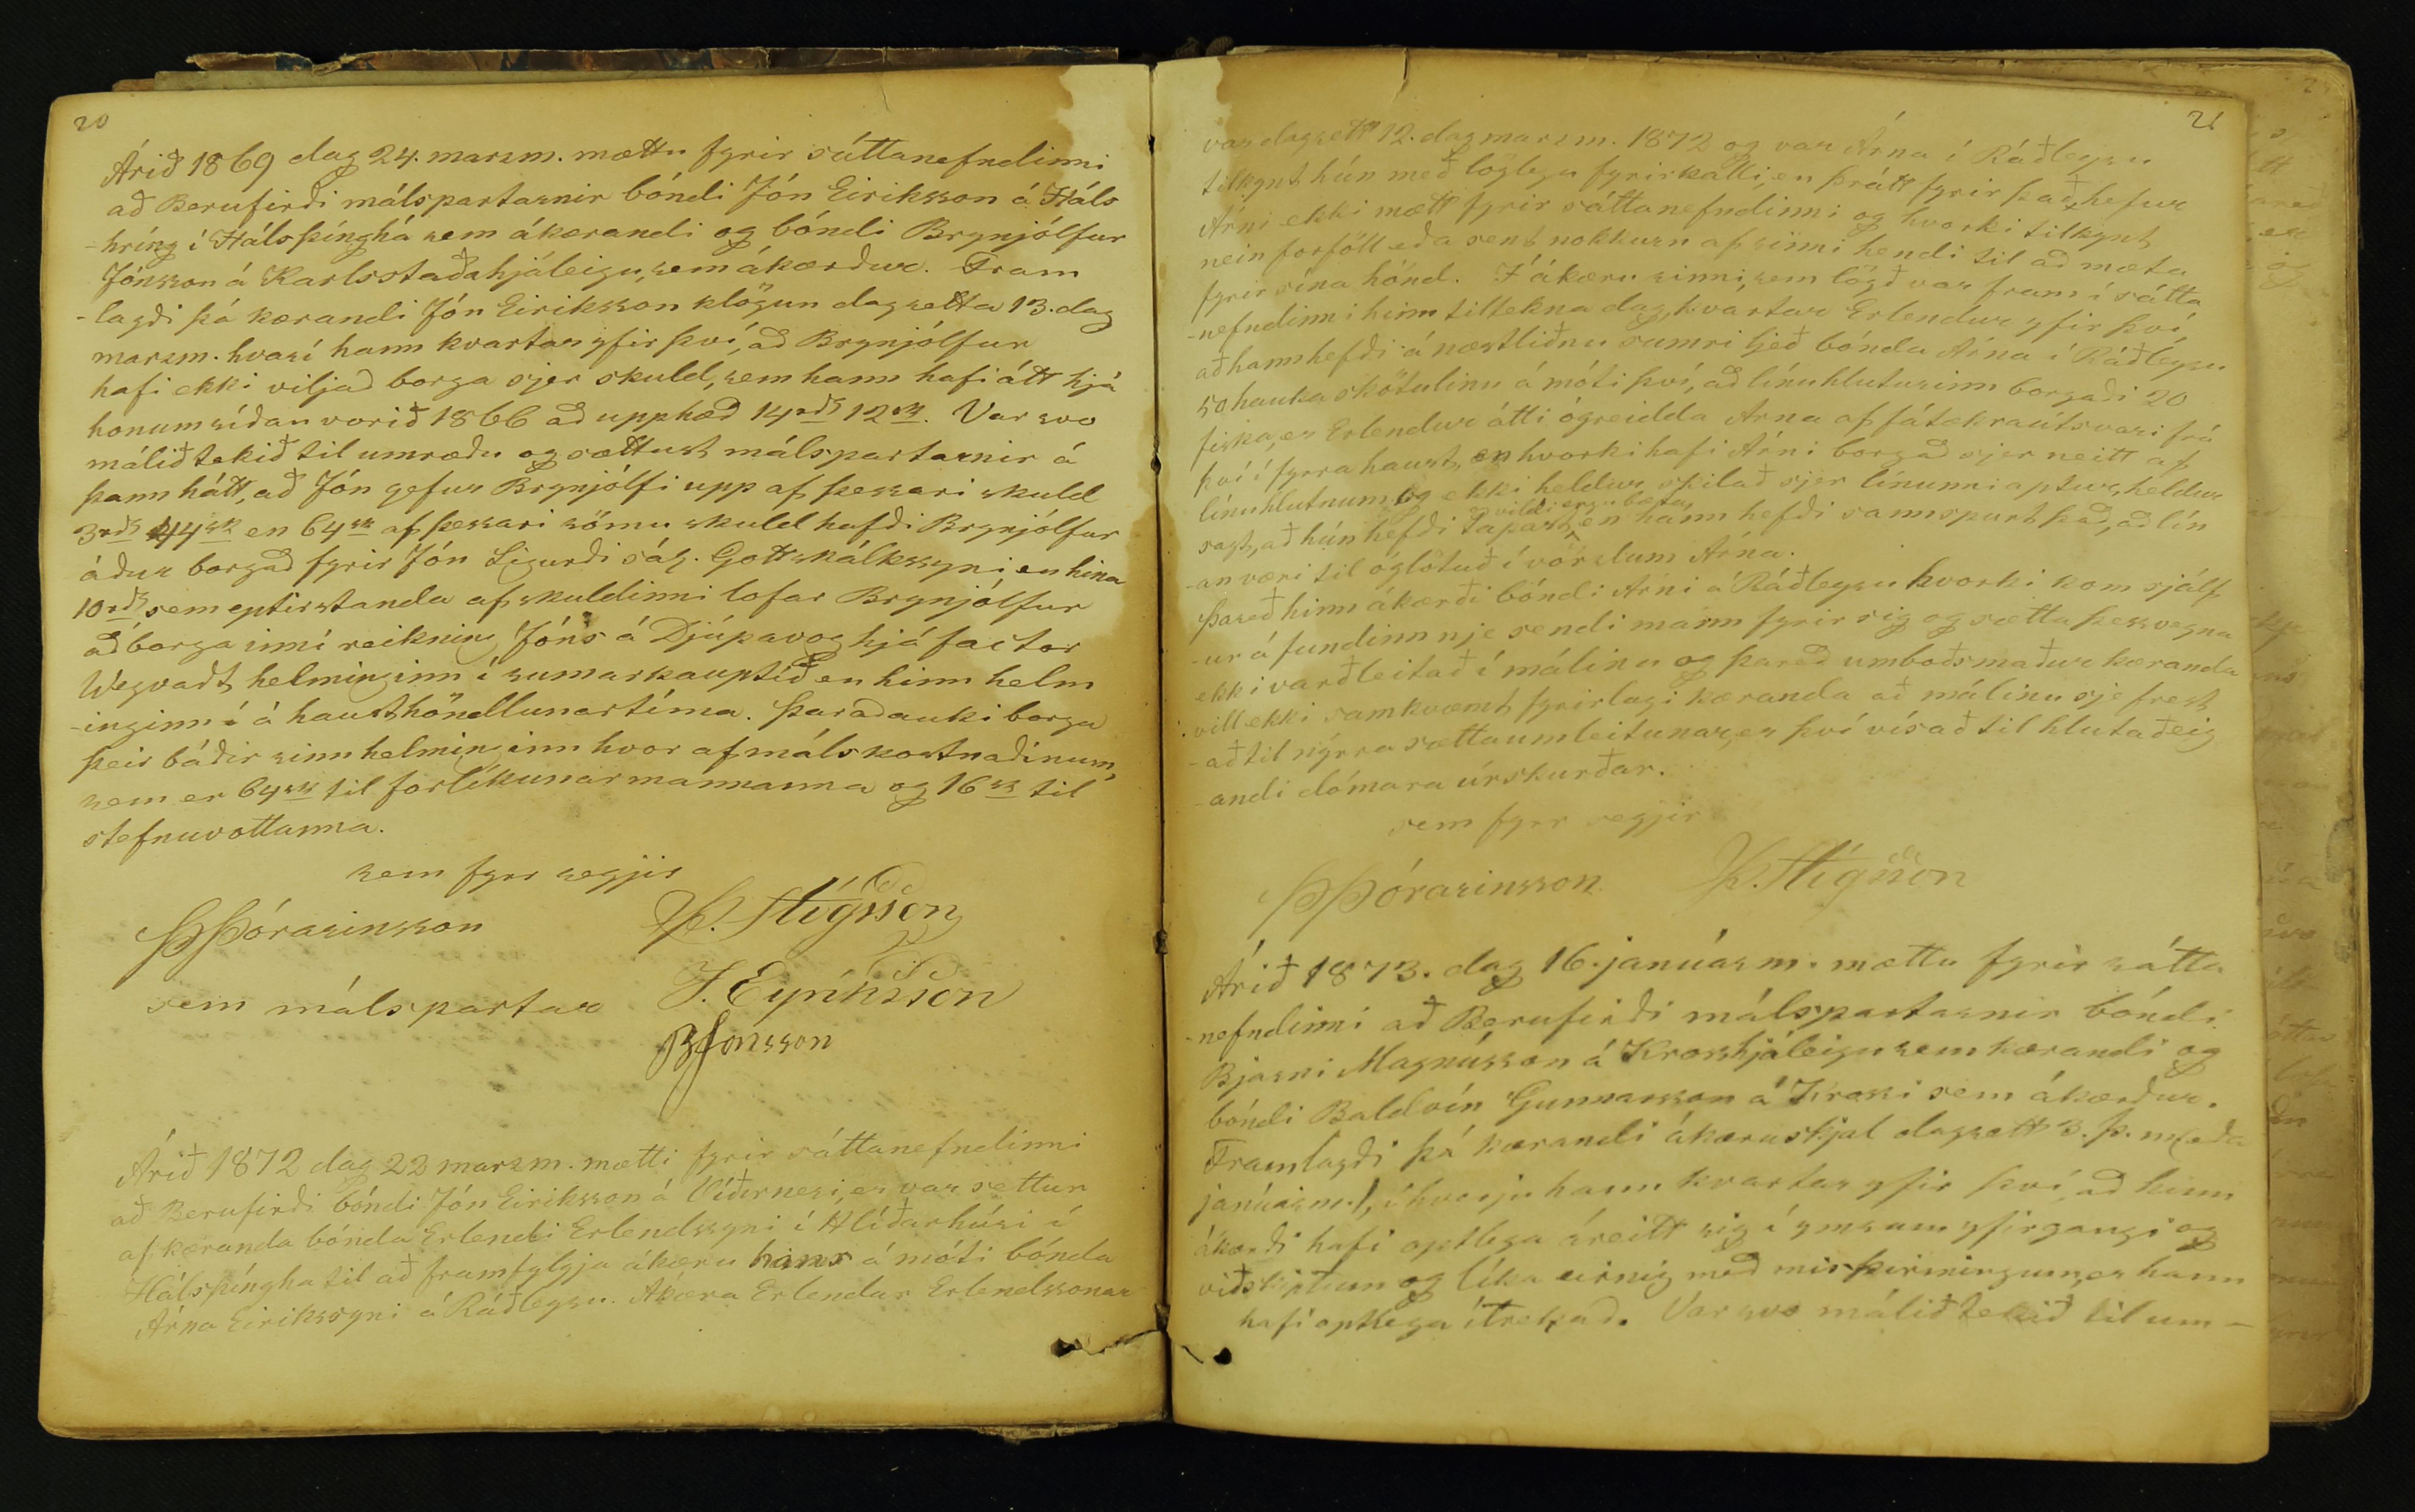 20
Árið 1869 dag 24. marzm. mættu fyrir sáttanefndinni
að Berufirði málspartarnir bóndi Jón Eiriksson á Háls
-hríng í Hálsþínghá sem ákærandi og bóndi Brynjólfur
Jónsson á Karlsstaðahjáleigu, sem ákærður. Fram
-lagði þá kærandi Jón Eiriksson klögun dagsetta 13. dag
marzm. hvarí hann kvartar yfir því, að Brynjólfur
hafi ekki viljað borga sjer skuld, sem hann hafi átt hjá
honum síðan vorið 1866 að upphæð 14 rdl 12 sk. Var svo
málið tekið til umræðu og sættust málspartarnir á
þann hátt, að Jón gefur Brynjólfi upp af þessari skuld
3 rdl 44 sk en 64 sk af þessari sömu skuld hafði Brynjólfur
áður borgað fyrir Jón Sigurði sál. Gottskálkssyni, en hina
10 rdl sem eptirstanda af skuldinni lofar Brynjólfur
að borga inní reikning Jóns á Djúpavog hjá factor
Weyvadt, helminginn í sumarkauptíð en hinn helm
-inginn í á hausthöndlunartíma. Þaraðauki borga
þeir báðir sinn helminginn hvor af málskostnaðinum,
sem er 64 sk til forlíkunarmannanna og 16 sk til
stefnuvottanna.
sem fyrr segjir
Þ Þórarinsson
Þ. Stígsson
sem málspartar
J. Eyríksson
B Jonsson
Árið 1872 dag 22 marzm. mætti fyrir sáttanefndinni
að Berufirði bóndi Jón Eiriksson á Víðirnesi, er var settur
af kæranda bónda Erlendi Erlendssyni í Hlíðarhúsi í
Hálsþíngha til að framfylgja ákæru hans á móti bónda
Árna Eirikssyni á Ráðleysu. Ákæra Erlendar Erlendssonar
21
var dagsett 12. dag marzm. 1872 og var Árna í Ráðleysu
tilkynt hún með löglegu fyrirkalli, en þrátt fyrir það, hefur
Árni ekki mætt fyrir sáttanefndinni og hvorki tilkynt
nein forföll eða sent nokkurn af sinni hendi til að mæta
fyrir sína hönd. Í ákæru sinni, sem lögð var fram í sátta
-nefndinni hinn tiltekna dag, kvartar Erlendur yfir því,
að hann hefði á næstliðnu sumri ljeð bónda Árna í Ráðleysu
50 hauka skötulínu á móti því, að línuhluturinn borgaði 20
fiska, er Erlendur átti ógreidda Arna af fátækraútsvari frá
því í fyrra haust, en hvorki hafi Árni borgað sjer neitt af
línuhlutnum og ekki heldur skilað sjer línunni aptur, heldur
vildi engu bæta,
sagt, að hún hefði tapast, en hann hefði sannspurt það, að lín
-an væri til óglötuð í vörzlum Árna.
Þareð hinn ákærði bóndi Árni á Ráðleysu hvorki kom sjálf
-ur á fundinn nje sendi mann fyrir sig og sætta þess vegna
ekki varð leitað í málinu og þareð umboðsmaður kæranda
vill ekki samkvæmt fyrirlagi kæranda að málinu sje frest
-að til nýrra sættaumleitunar, er því vísað til hlutaðeig
-andi dómara úrskurðar.
sem fyrr segjir
Þ Þórarinsson
Þ. Stígsson
Árið 1873. dag 16. janúarm. mættu fyrir sátta
-nefndinni að Berufirði málspartarnir bóndi
Bjarni Magnússon á Krosshjáleigu sem kærandi og
bóndi Baldvín Gunnarsson á Krossi sem ákærður.
Framlagði þá kærandi ákæruskjal dagsett 3. þ. m (eða
janúarm.), í hverju hann kvartar yfir því, að hinn
ákærði hafi optlega áreitt sig í ymsum yfirgangi og
viðskiptum og líka einnig með misþirmingum, er hann
hafi optlega ítrekað. Var svo málið tekið til um-